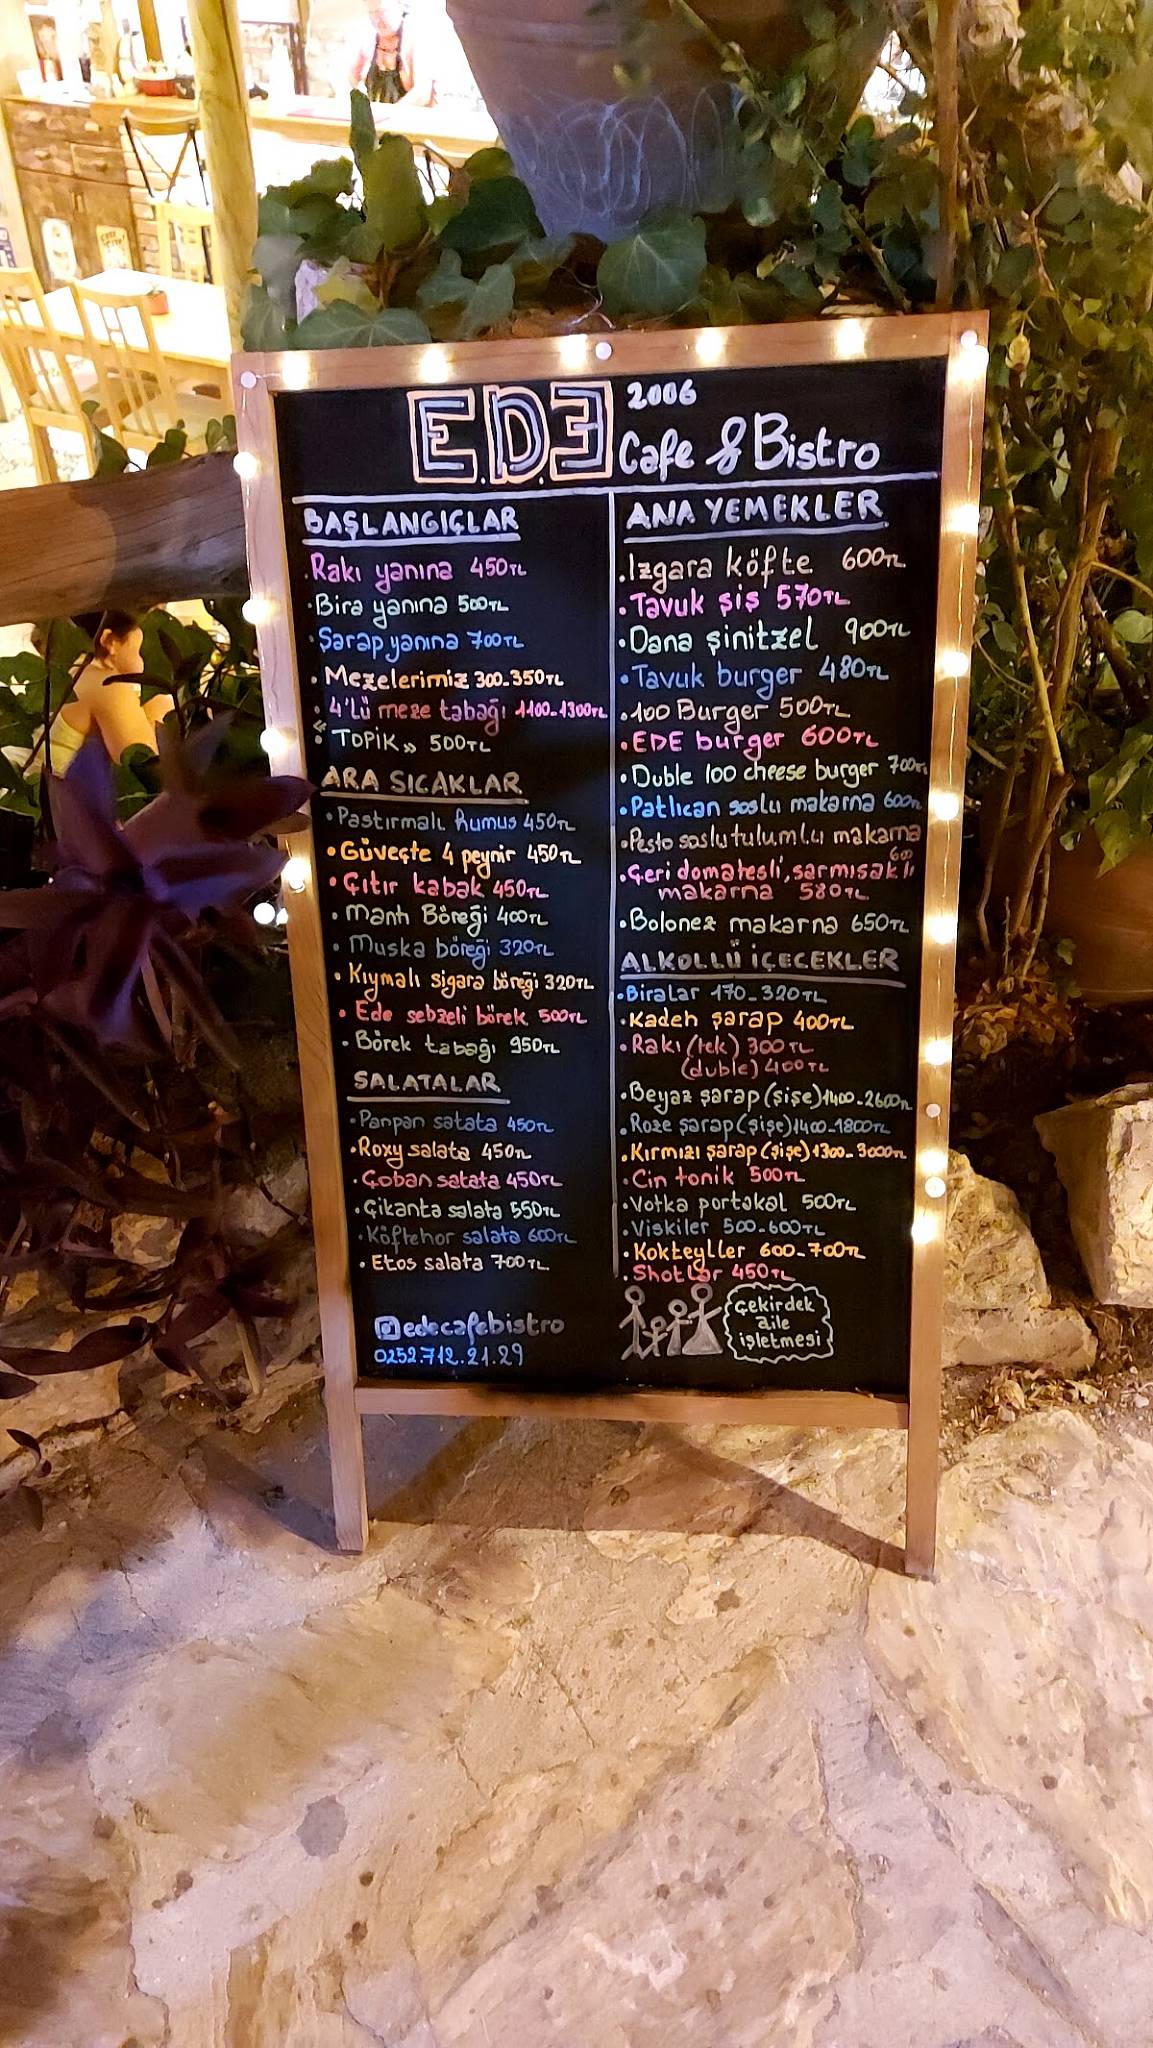 E.D.E 2006
Cafe & Bistro
BAŞLANGIÇLAR
Rakı yanına 450TL
Bira yanına 500TL
Şarap yanına 700TL
Mezelerimiz 300-350TL
4'Lü meze tabağı 1100-1300TL
"TOPİK" 500TL
ARA SICAKLAR
Pastırmalı humus 450TL
Güveçte 4 peynir 450TL
Çıtır kabak 450TL
Mantı Böreği 400TL
Muska böreği 320TL
Kıymalı sigara böreği 320TL
Ede sebzeli börek 500TL
Börek tabağı 950TL
SALATALAR
Panpan salata 450TL
Roxy salata 450TL
Çoban salata 450TL
Çikanta salata 550TL
Köftehor salata 600TL
Etos salata 700TL
edecafebistro
0252.712.21.29
ANA YEMEKLER
Izgara köfte 600TL
Tavuk şiş 570TL
Dana şinitzel 900TL
Tavuk burger 480TL
100 Burger 500TL
EDE burger 600TL
Duble 100 cheese burger 700TL
Patlıcan soslu makarna 600TL
Pesto soslu tulumlu makarna
600
Çeri domatesli, sarmısaklı
makarna 580TL
Bolonez makarna 650TL
ALKOLLÜ İÇECEKLER
Biralar 170-320TL
Kadeh şarap 400TL
Rakı (tek) 300TL
(duble) 400TL
Beyaz şarap (şişe) 1400-2600TL
Roze şarap (şişe) 1400-1800TL
Kırmızı şarap (şişe) 1300-3000TL
Cin tonik 500TL
Votka portakal 500TL
Viskiler 500-600TL
Kokteyller 600-700TL
Shotlar 450TL
Çekirdek
aile
işletmesi